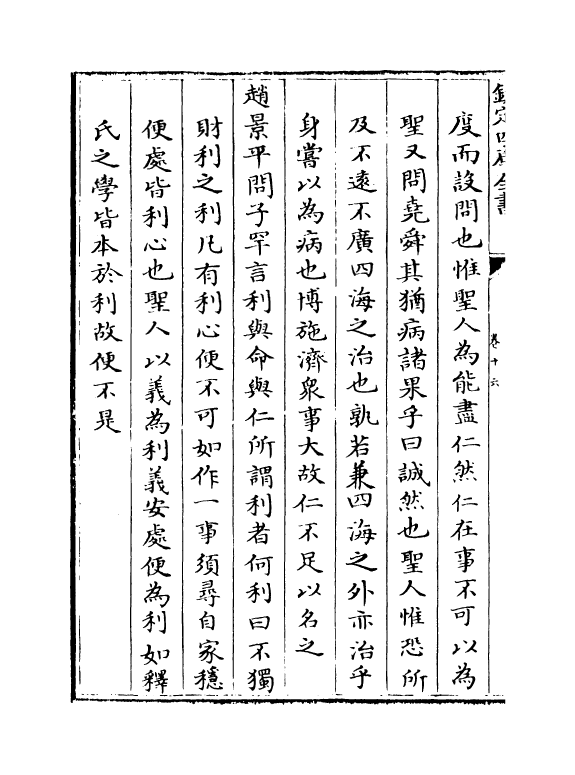 欽定四庫全書
卷十六
度而設問也惟聖人為能盡仁然仁在事不可以為
聖又問堯舜其猶病諸果乎曰誠然也聖人惟恐所
及不遠不廣四海之治也孰若兼四海之外亦治乎
身嘗以為病也博施濟衆事大故仁不足以名之
趙景平問子罕言利與命與仁所謂利者何利曰不獨
財利之利凡有利心便不可如作一事須尋自家穩
便處皆利心也聖人以義為利義安處便為利如釋
氏之學皆本於利故便不是